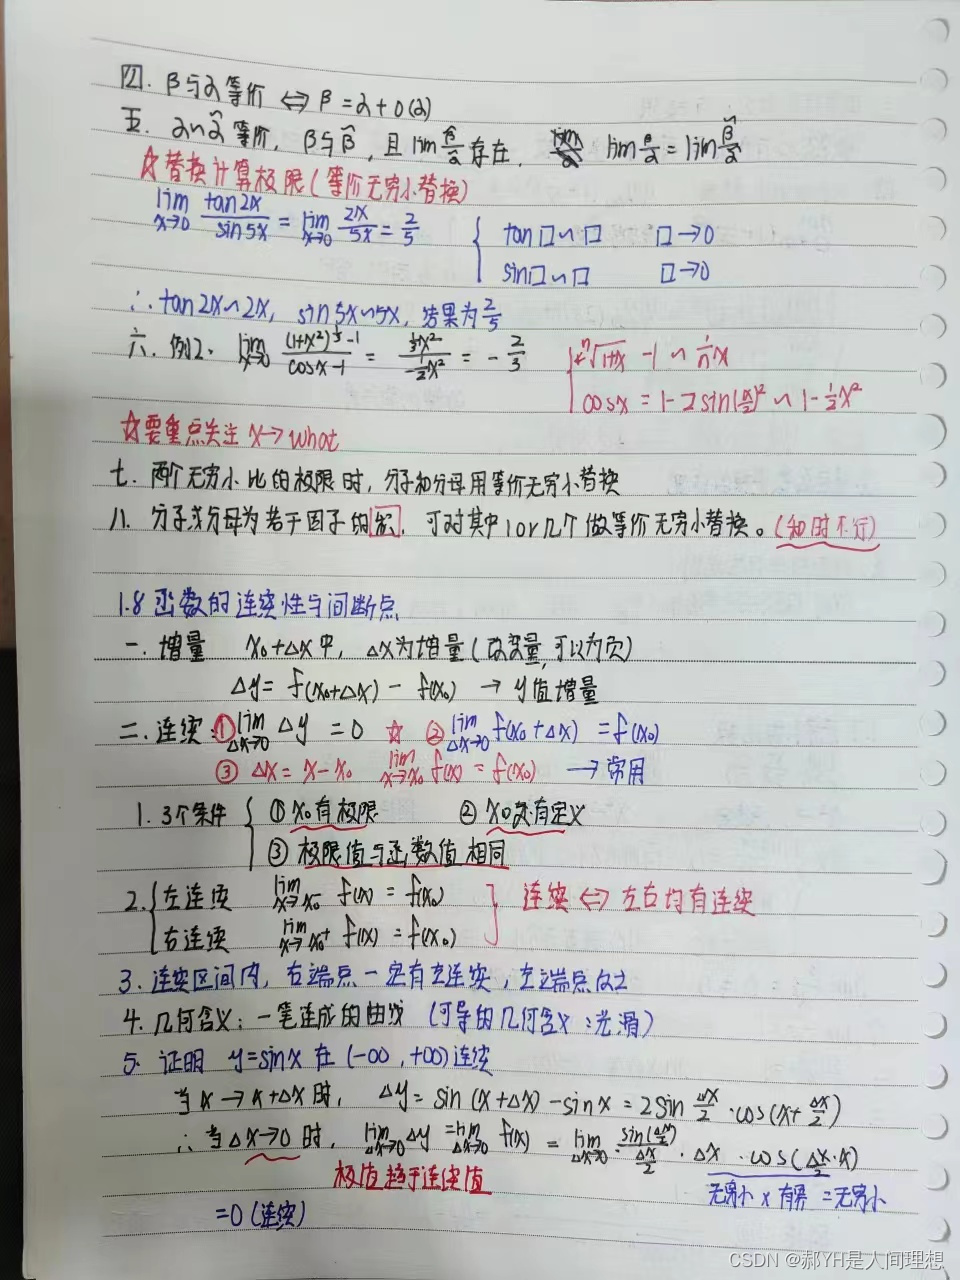 四. β与α等价 ⇔ β = α + o(α)
五. α~α̃ 等价, β与β̃, 且 lim β̃/α̃ 存在, lim β/α = lim β̃/α̃
☆替换计算极限(等价无穷小替换)
lim x→0 tan2x/sin5x = lim x→0 2x/5x = 2/5 { tan□~□ □→0
sin□~□ □→0
∴ tan2x~2x, sin5x~5x, 结果为2/5
六. 例2. lim x→0 ((1+x²)^(1/3) -1)/(cosx-1) = (1/3 x²)/(-1/2 x²) = -2/3 { ⁿ√(1+x) -1 ~ 1/n x
cosx = 1-2sin(x/2)² ~ 1-1/2 x²
☆要重点关注 x→what
七. 两个无穷小比的极限时, 分子和分母用等价无穷小替换
八. 分子或分母为若干因子的积, 可对其中1or几个做等价无穷小替换。(和时不行)
1.8 函数的连续性与间断点
一. 增量 x₀+Δx中, Δx为增量(改变量,可以为负)
Δy = f(x₀+Δx) - f(x₀) → y值增量
二. 连续: ① lim Δx→0 Δy = 0 ☆ ② lim Δx→0 f(x₀+Δx) = f(x₀)
③ Δx = x-x₀ lim x→x₀ f(x) = f(x₀) → 常用
1. 3个条件 { ① x₀有极限 ② x₀处有定义
③ 极限值与函数值相同
2. { 左连续 lim x→x₀⁻ f(x) = f(x₀) } 连续 ⇔ 左右均有连续
右连续 lim x→x₀⁺ f(x) = f(x₀)
3. 连续区间内, 右端点一定有左连续, 左端点反之
4. 几何含义: 一笔连成的曲线 (可导的几何含义: 光滑)
5. 证明 y=sinx 在 (-∞, +∞) 连续
当 x→x+Δx 时, Δy = sin(x+Δx) - sinx = 2sin Δx/2 · cos(x+Δx/2)
∴ 当Δx→0时, lim Δx→0 Δy = lim Δx→0 f(x) = lim Δx→0 sin(Δx/2)/(Δx/2) · Δx · cos(Δx/2·x)
极值趋于连续值 无穷小 x 有界 = 无穷小
=0 (连续)
CSDN @郝YH是人间理想